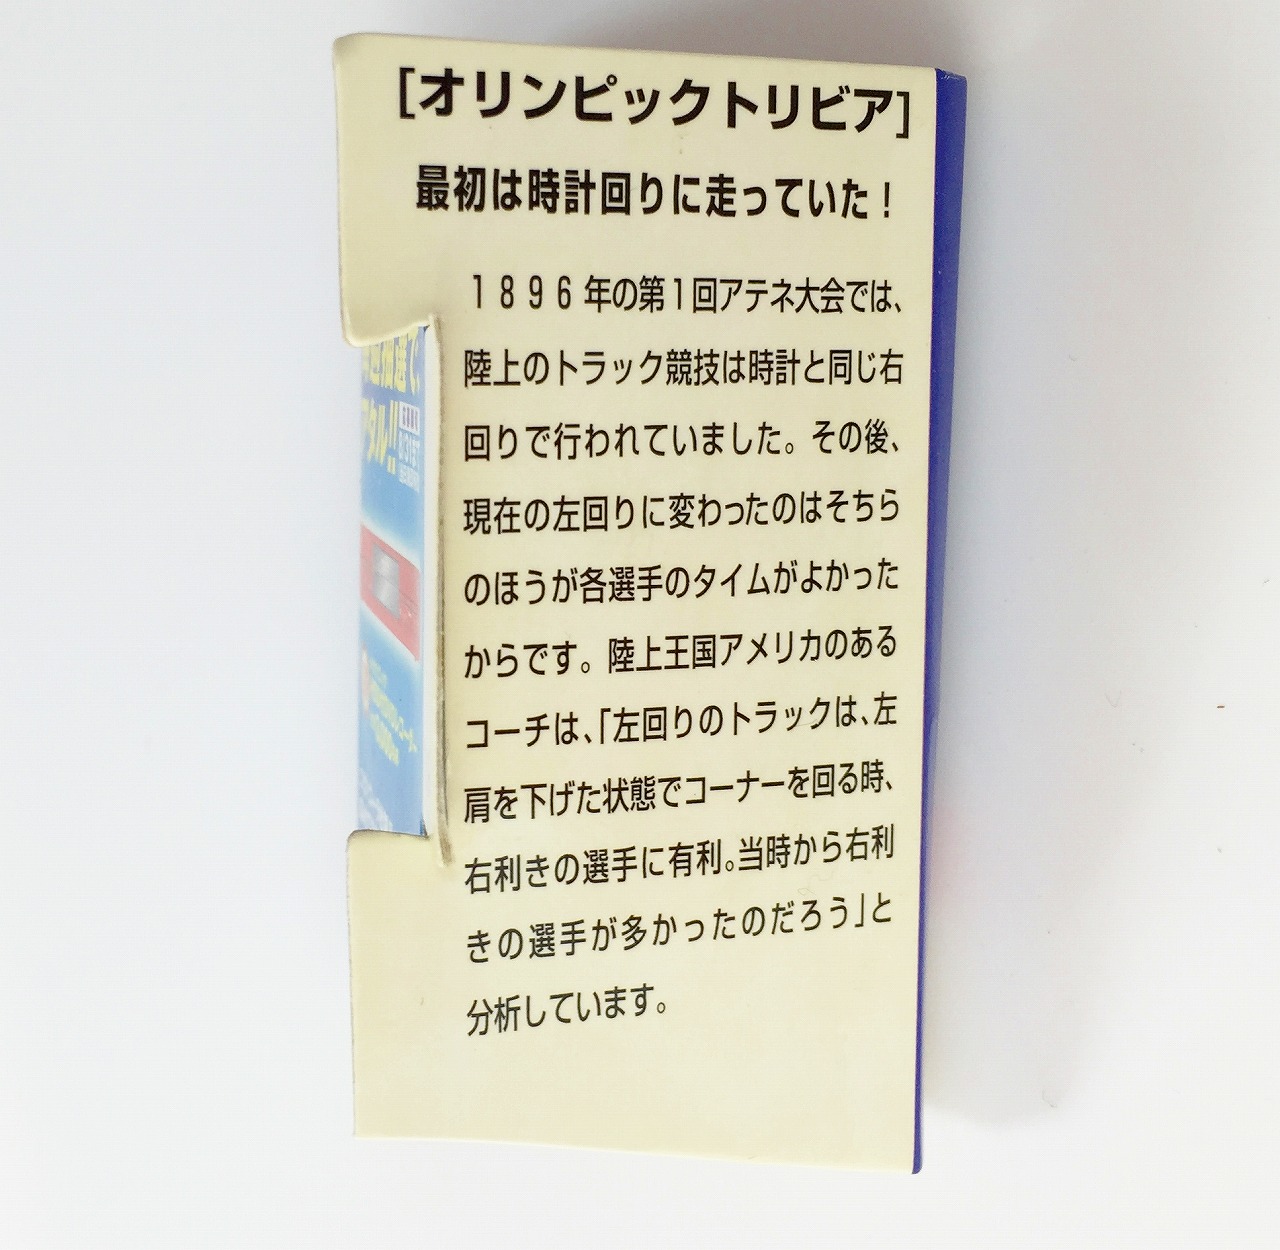 [オリンピックトリビア]
最初は時計回りに走っていた!
1896年の第1回アテネ大会では、
陸上のトラック競技は時計と同じ右
回りで行われていました。その後、
現在の左回りに変わったのはそちら
のほうが各選手のタイムがよかった
からです。陸上王国アメリカのある
コーチは、「左回りのトラックは、左
肩を下げた状態でコーナーを回る時、
右利きの選手に有利。当時から右利
きの選手が多かったのだろう」と
分析しています。
選で、
タル!!